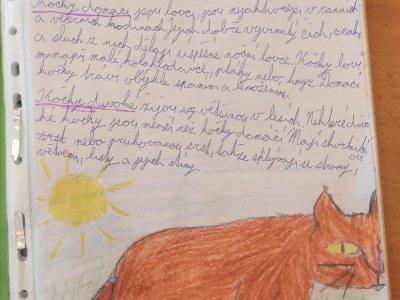 Kočky domací jsou lovci, jsou nejaktivnější v ranních
a večerních hodinách, jejich dobře vyvinutý čich, zrak
a sluch z nich dělají úspěšné noční lovce. Kočky loví
např. malé hlodavce, ptáky nebo hmyz. Domací
kočky traví obvykle spaním a lenošením.
Kočky divoké žijou většinou v lesích. Některé divo
ké kočky jsou menší než kočky domácí. Mají
srst nebo pruhovanou srst, takže splývají se stromy,
větvemi, listy a jejich stíny.